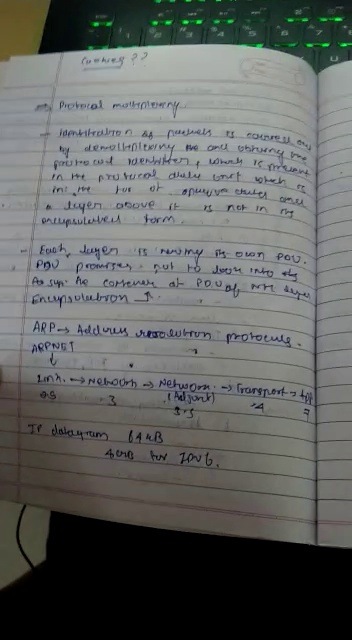 Cookies ??
Protocol multiplexing
- Identification of packets is carried out
by demultiplexing the and observing the
protocol identifier, which is present
in the protocol data unit which is
in the for of
a layer above it is not in its
encapsulated form.
- Each layer is having its own PDU.
PDU promises not to look into its
the contener of PDU of Nth layer
Encapsulation
ARP → Address resolution protocols.
ARPNET
↓
Link. → Network → Network. → Transport → App
2.5 3 (Adjunt) 4 7
3.5
IP datagram 64 kB
4GB for IPv6.